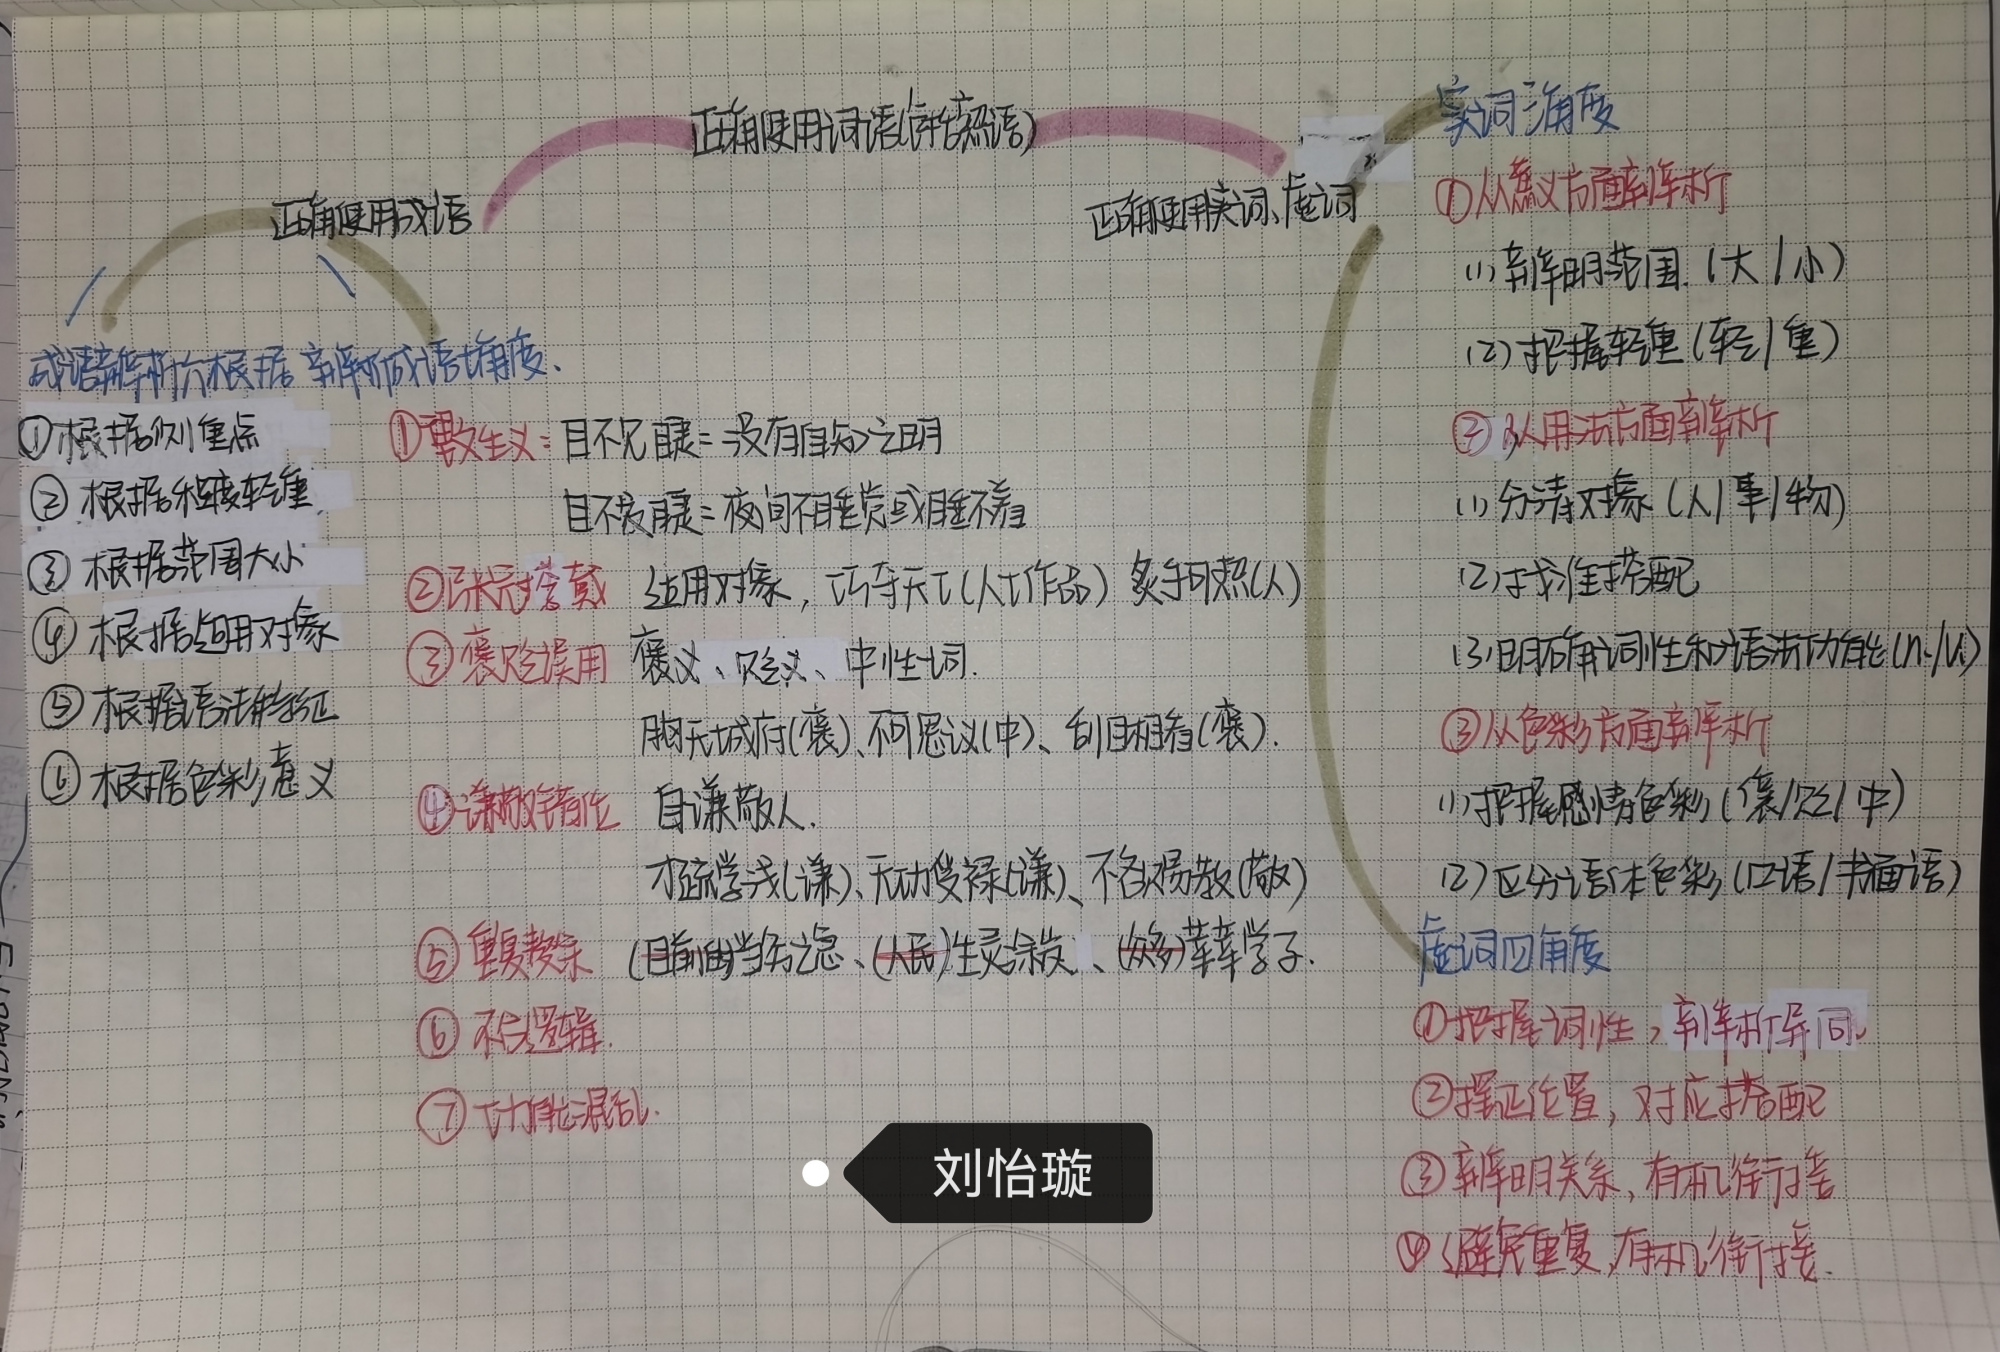 正确使用词语(包括熟语)
正确使用成语
成语辨析六根据
①根据侧重点
②根据程度轻重
③根据范围大小
④根据适用对象
⑤根据语法特征
⑥根据色彩意义
辨析成语七角度.
①望文生义：目不见睫=没有自知之明
目不交睫=夜间不睡觉或睡不着
②张冠李戴 适用对象，巧夺天工(人工作品) 炙手可热(人)
③褒贬误用 褒义、贬义、中性词.
胸无城府(褒)、不可思议(中)、刮目相看(褒).
④谦敬错位 自谦敬人.
才疏学浅(谦)、无功受禄(谦)、不吝赐教(敬)
⑤重复赘余 (目前的)当务之急、(人民)生灵涂炭、(众多)莘莘学子.
⑥不合逻辑.
⑦功能混乱.
正确使用实词、虚词
实词三角度
①从意义方面辨析
(1)辨明范围.(大/小)
(2)把握轻重(轻/重)
②从用法方面辨析
(1)分清对象(人/事/物)
(2)找准搭配
(3)明确词性和语法功能(n./v.)
③从色彩方面辨析
(1)把握感情色彩(褒/贬/中)
(2)区分语体色彩(口语/书面语)
虚词四角度
①把握词性，辨析异同.
②摆正位置，对应搭配
③辨明关系，有机衔接
④避免重复，有机衔接.
刘怡璇